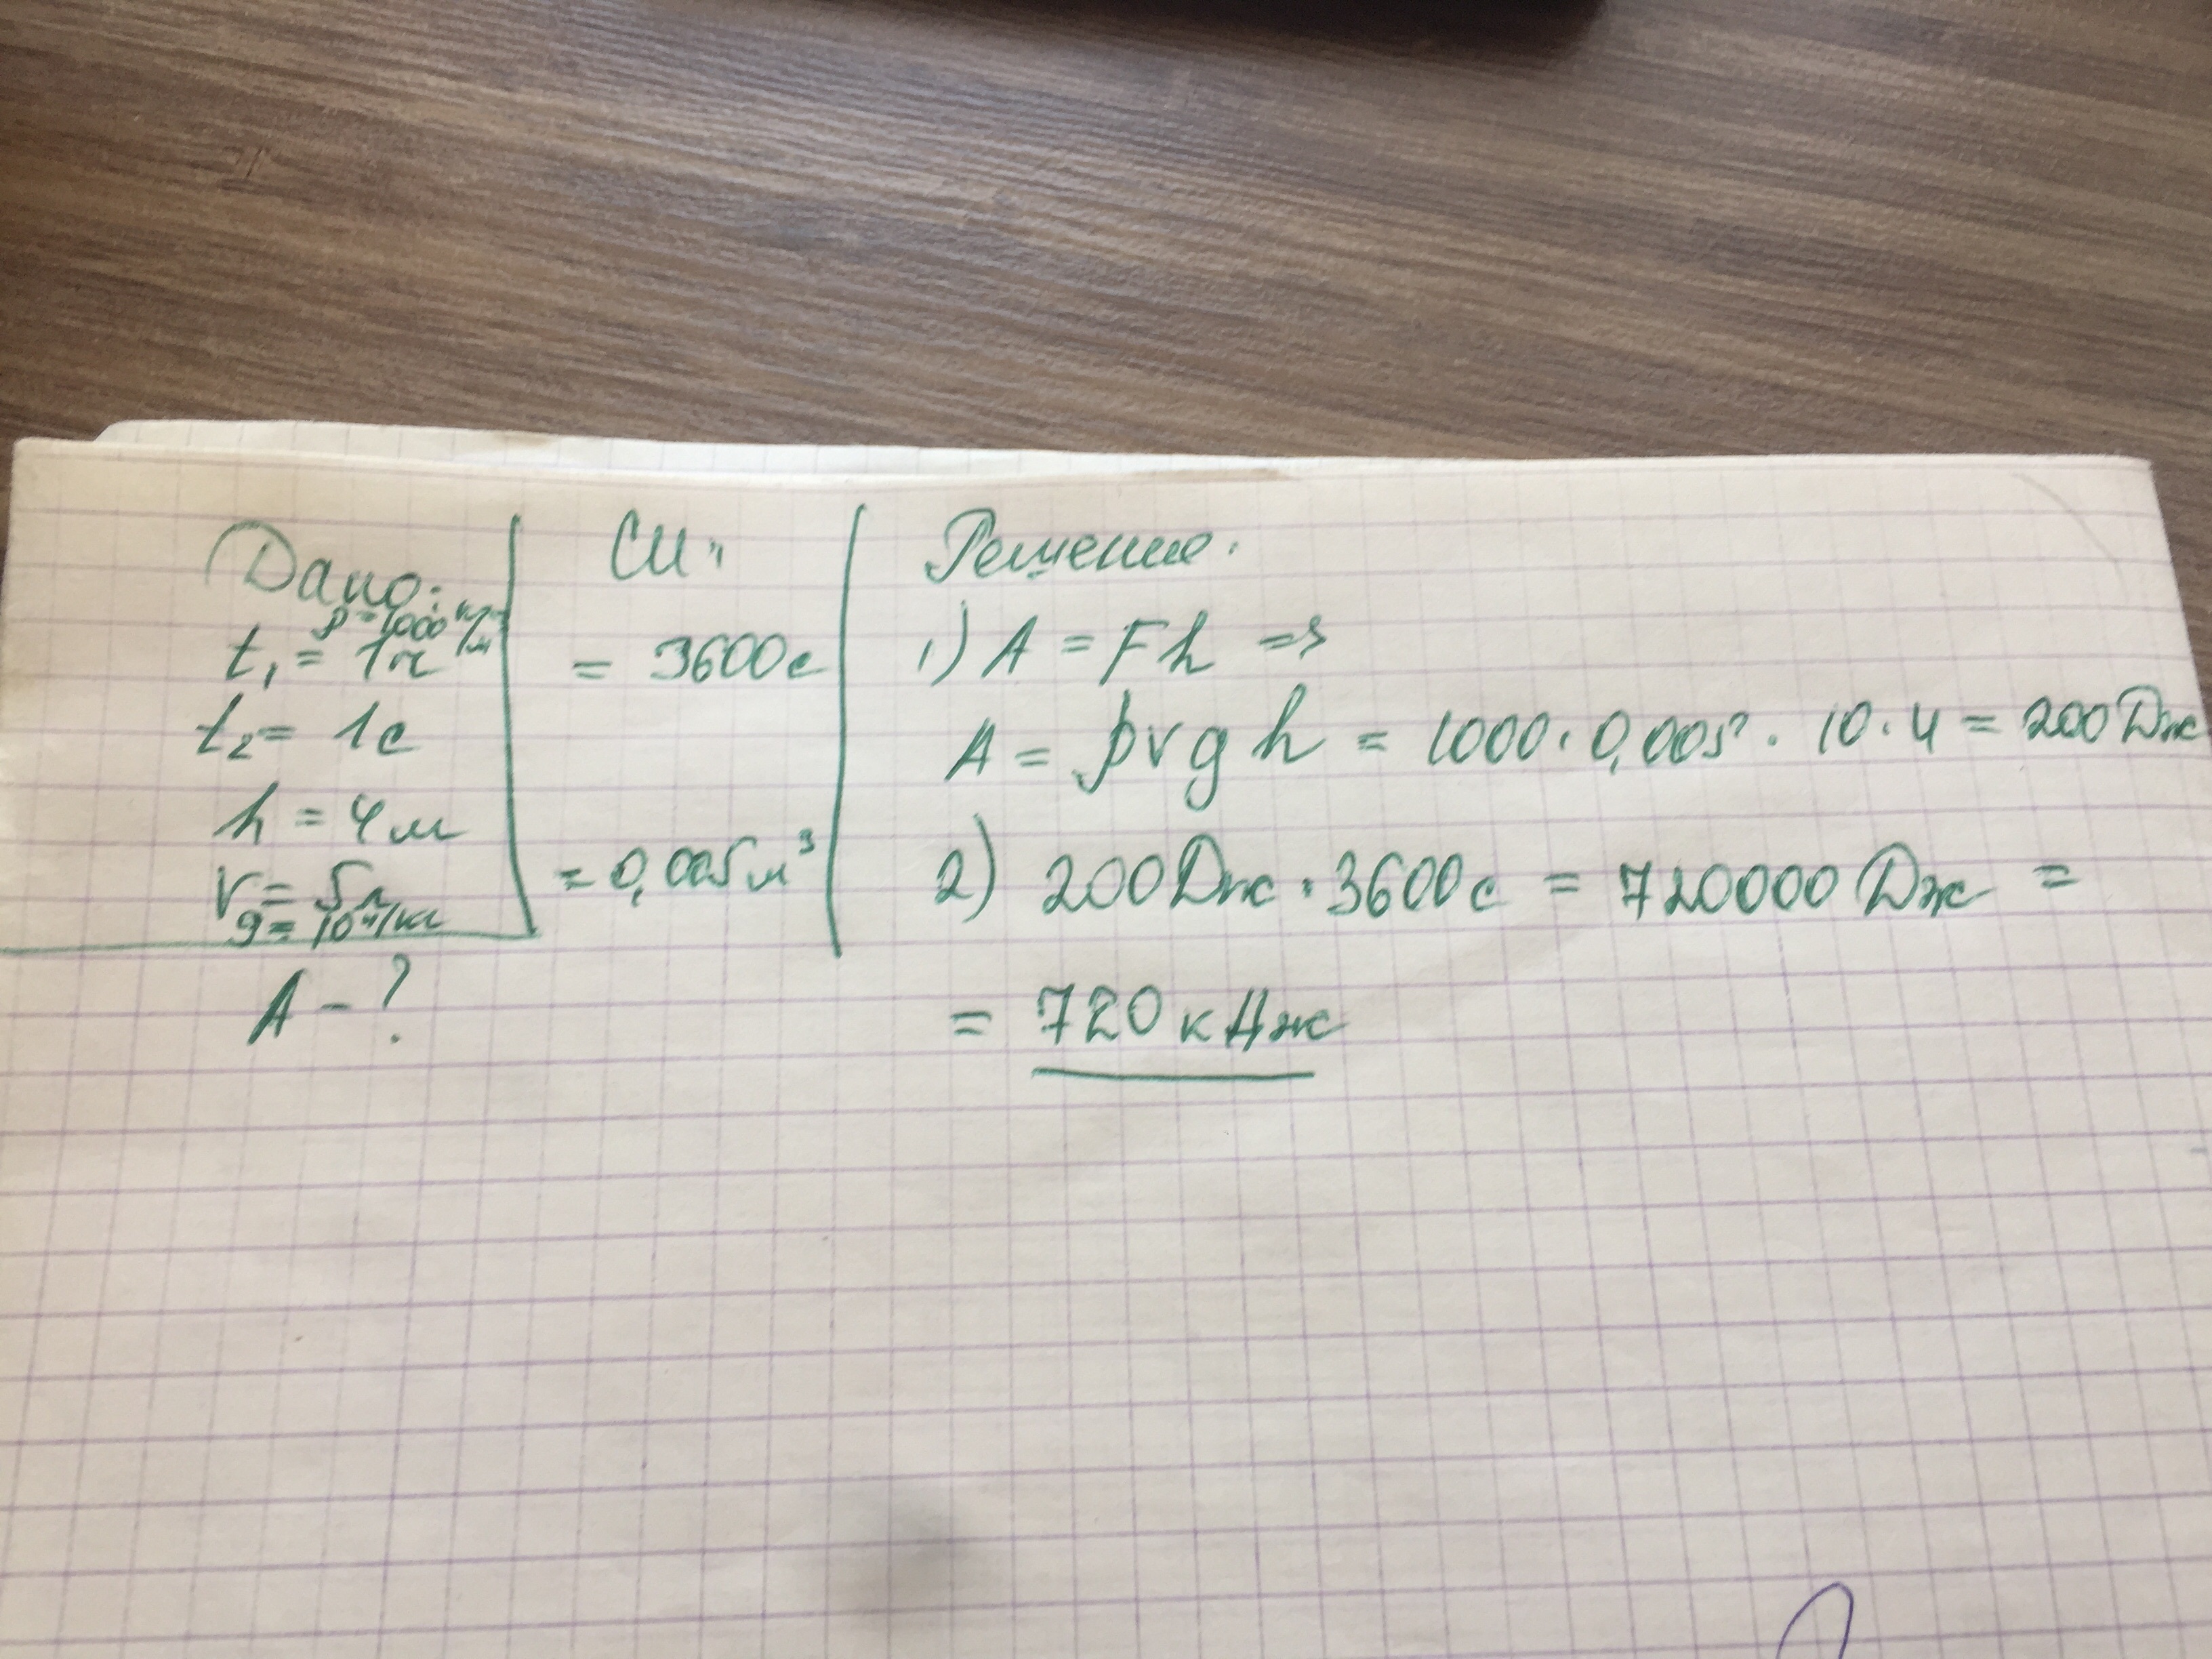 Дано:
ρ = 1000 кг/м
t₁ = 1ч
t₂ = 1с
h = 4м
V = 5л
g = 10 Н/кг
A - ?
СИ:
= 3600с
= 0,005м³
Решение:
1) A = Fh =>
A = ρvgh = 1000 · 0,005 · 10 · 4 = 200 Дж
2) 200 Дж · 3600с = 720000 Дж =
= 720 кДж